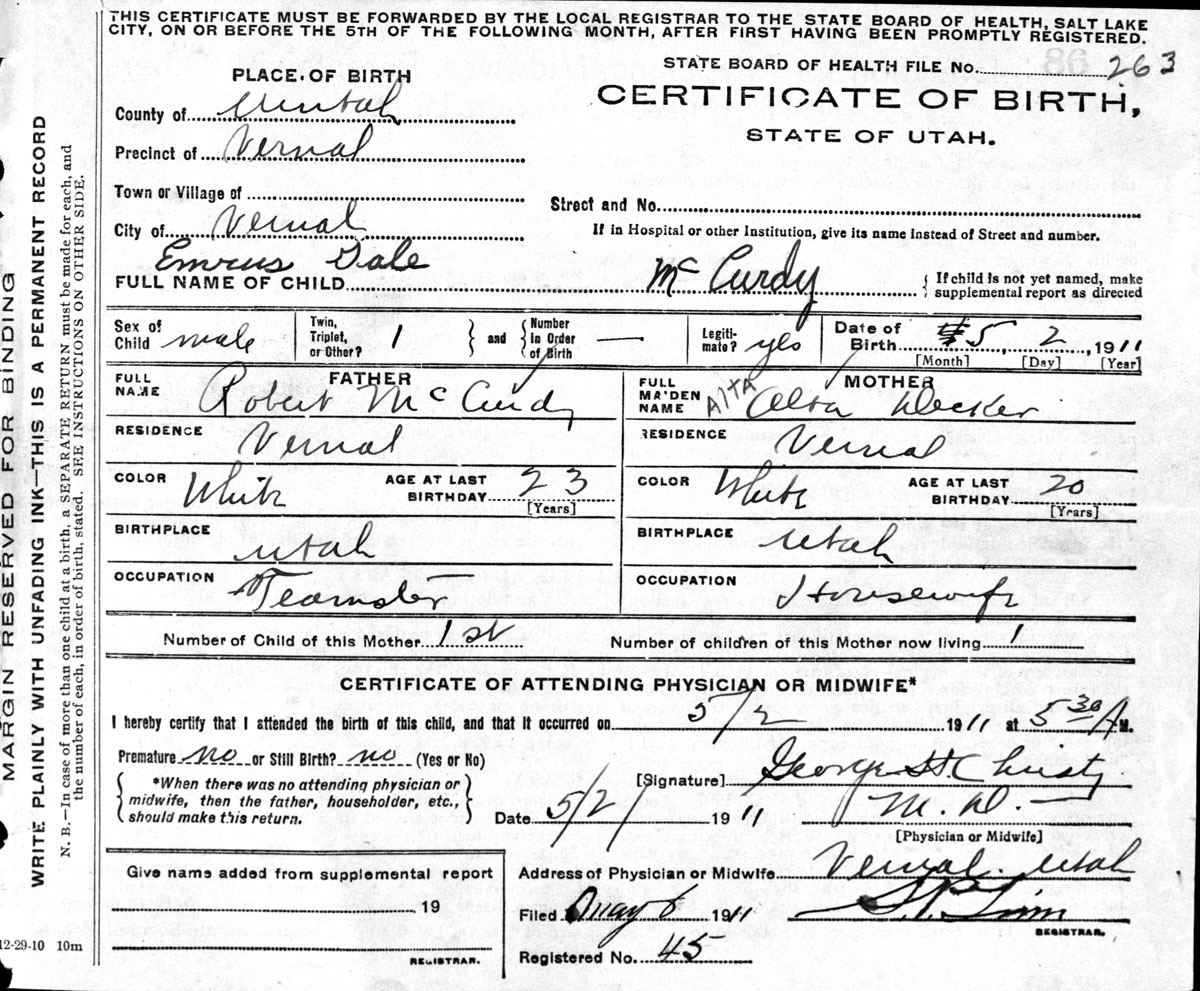 THIS CERTIFICATE MUST BE FORWARDED BY THE LOCAL REGISTRAR TO THE STATE BOARD OF HEALTH, SALT LAKE
CITY, ON OR BEFORE THE 5TH OF THE FOLLOWING MONTH, AFTER FIRST HAVING BEEN PROMPTLY REGISTERED.
STATE BOARD OF HEALTH FILE No. 263
PLACE OF BIRTH
CERTIFICATE OF BIRTH,
STATE OF UTAH.
County of Uintah
Precinct of Vernal
Town or Village of
Street and No.
City of Vernal
If in Hospital or other Institution, give its name instead of Street and number.
FULL NAME OF CHILD Dale McCurdy
{ If child is not yet named, make
supplemental report as directed
Sex of Child male
Twin, Triplet, or Other? 1 } and { Number in Order of Birth —
Legitimate? yes
Date of Birth 5, 2, 1911
[Month] [Day] [Year]
FATHER
FULL NAME Robert McCurdy
RESIDENCE Vernal
COLOR White AGE AT LAST BIRTHDAY 23
[Years]
BIRTHPLACE Utah
OCCUPATION Teamster
MOTHER
FULL MAIDEN NAME ALTA Alta Decker
RESIDENCE Vernal
COLOR White AGE AT LAST BIRTHDAY 20
[Years]
BIRTHPLACE Utah
OCCUPATION Housewife
Number of Child of this Mother 1st Number of children of this Mother now living 1
CERTIFICATE OF ATTENDING PHYSICIAN OR MIDWIFE*
I hereby certify that I attended the birth of this child, and that it occurred on 5/2 1911 at 5 30 A M.
Premature no or Still Birth? no (Yes or No)
{ *When there was no attending physician or
midwife, then the father, householder, etc.,
should make this return. }
[Signature] George H. Christy
Date 5/2/ 1911 M.D. —
[Physician or Midwife]
Address of Physician or Midwife Vernal Utah
Filed May 6 1911
REGISTRAR.
Registered No. 45
Give name added from supplemental report
19
REGISTRAR.
12-29-10 10m
MARGIN RESERVED FOR BINDING
WRITE PLAINLY WITH UNFADING INK—THIS IS A PERMANENT RECORD
N. B.—In case of more than one child at a birth, a SEPARATE RETURN must be made for each, and
the number of each, in order of birth, stated. SEE INSTRUCTIONS ON OTHER SIDE.